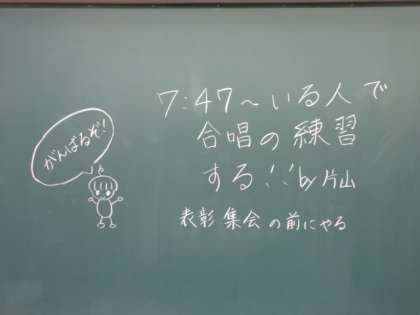 7:47～いる人で
合唱の練習
する!! by 片山
表彰集会の前にやる
がんばるぞ!